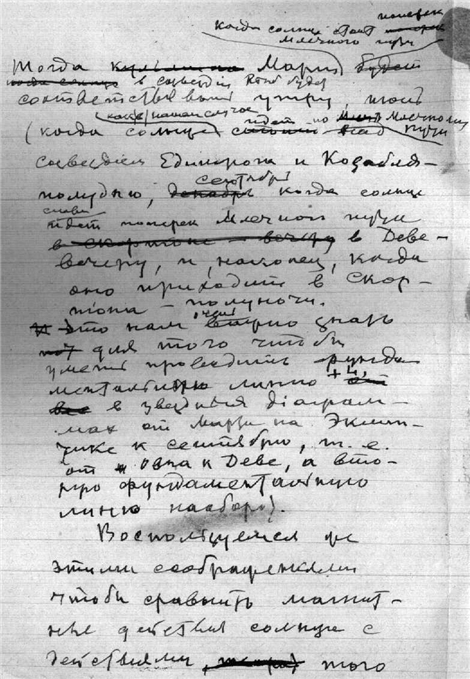 когда солнце стоит поперек
млечного пути
Тогда Март будет
когда солнце в созвездии
соответствовать утру, июнь
(когда солнце идет по Млечному пути
созвездием Единорога и Корабля –
полудню, сентябрь когда солнце
снова
идет поперек Млечного пути
в скорпионе – вечеру в Деве –
вечеру, и, наконец, когда
оно приходит в Скор-
пиона – полуночи.
Это нам очень знать
для того чтобы
уметь проводить фунда
ментальную линию
в звездных діаграм-
мах от Марта на Эклип-
тике к сентябрю, т. е.
от Овна к Деве, а вто-
рую фундаментальную
линию наоборот.
Воспользуемся же
этими соображениями
чтобы сравнить магнит-
ные действия солнца с
действиями того